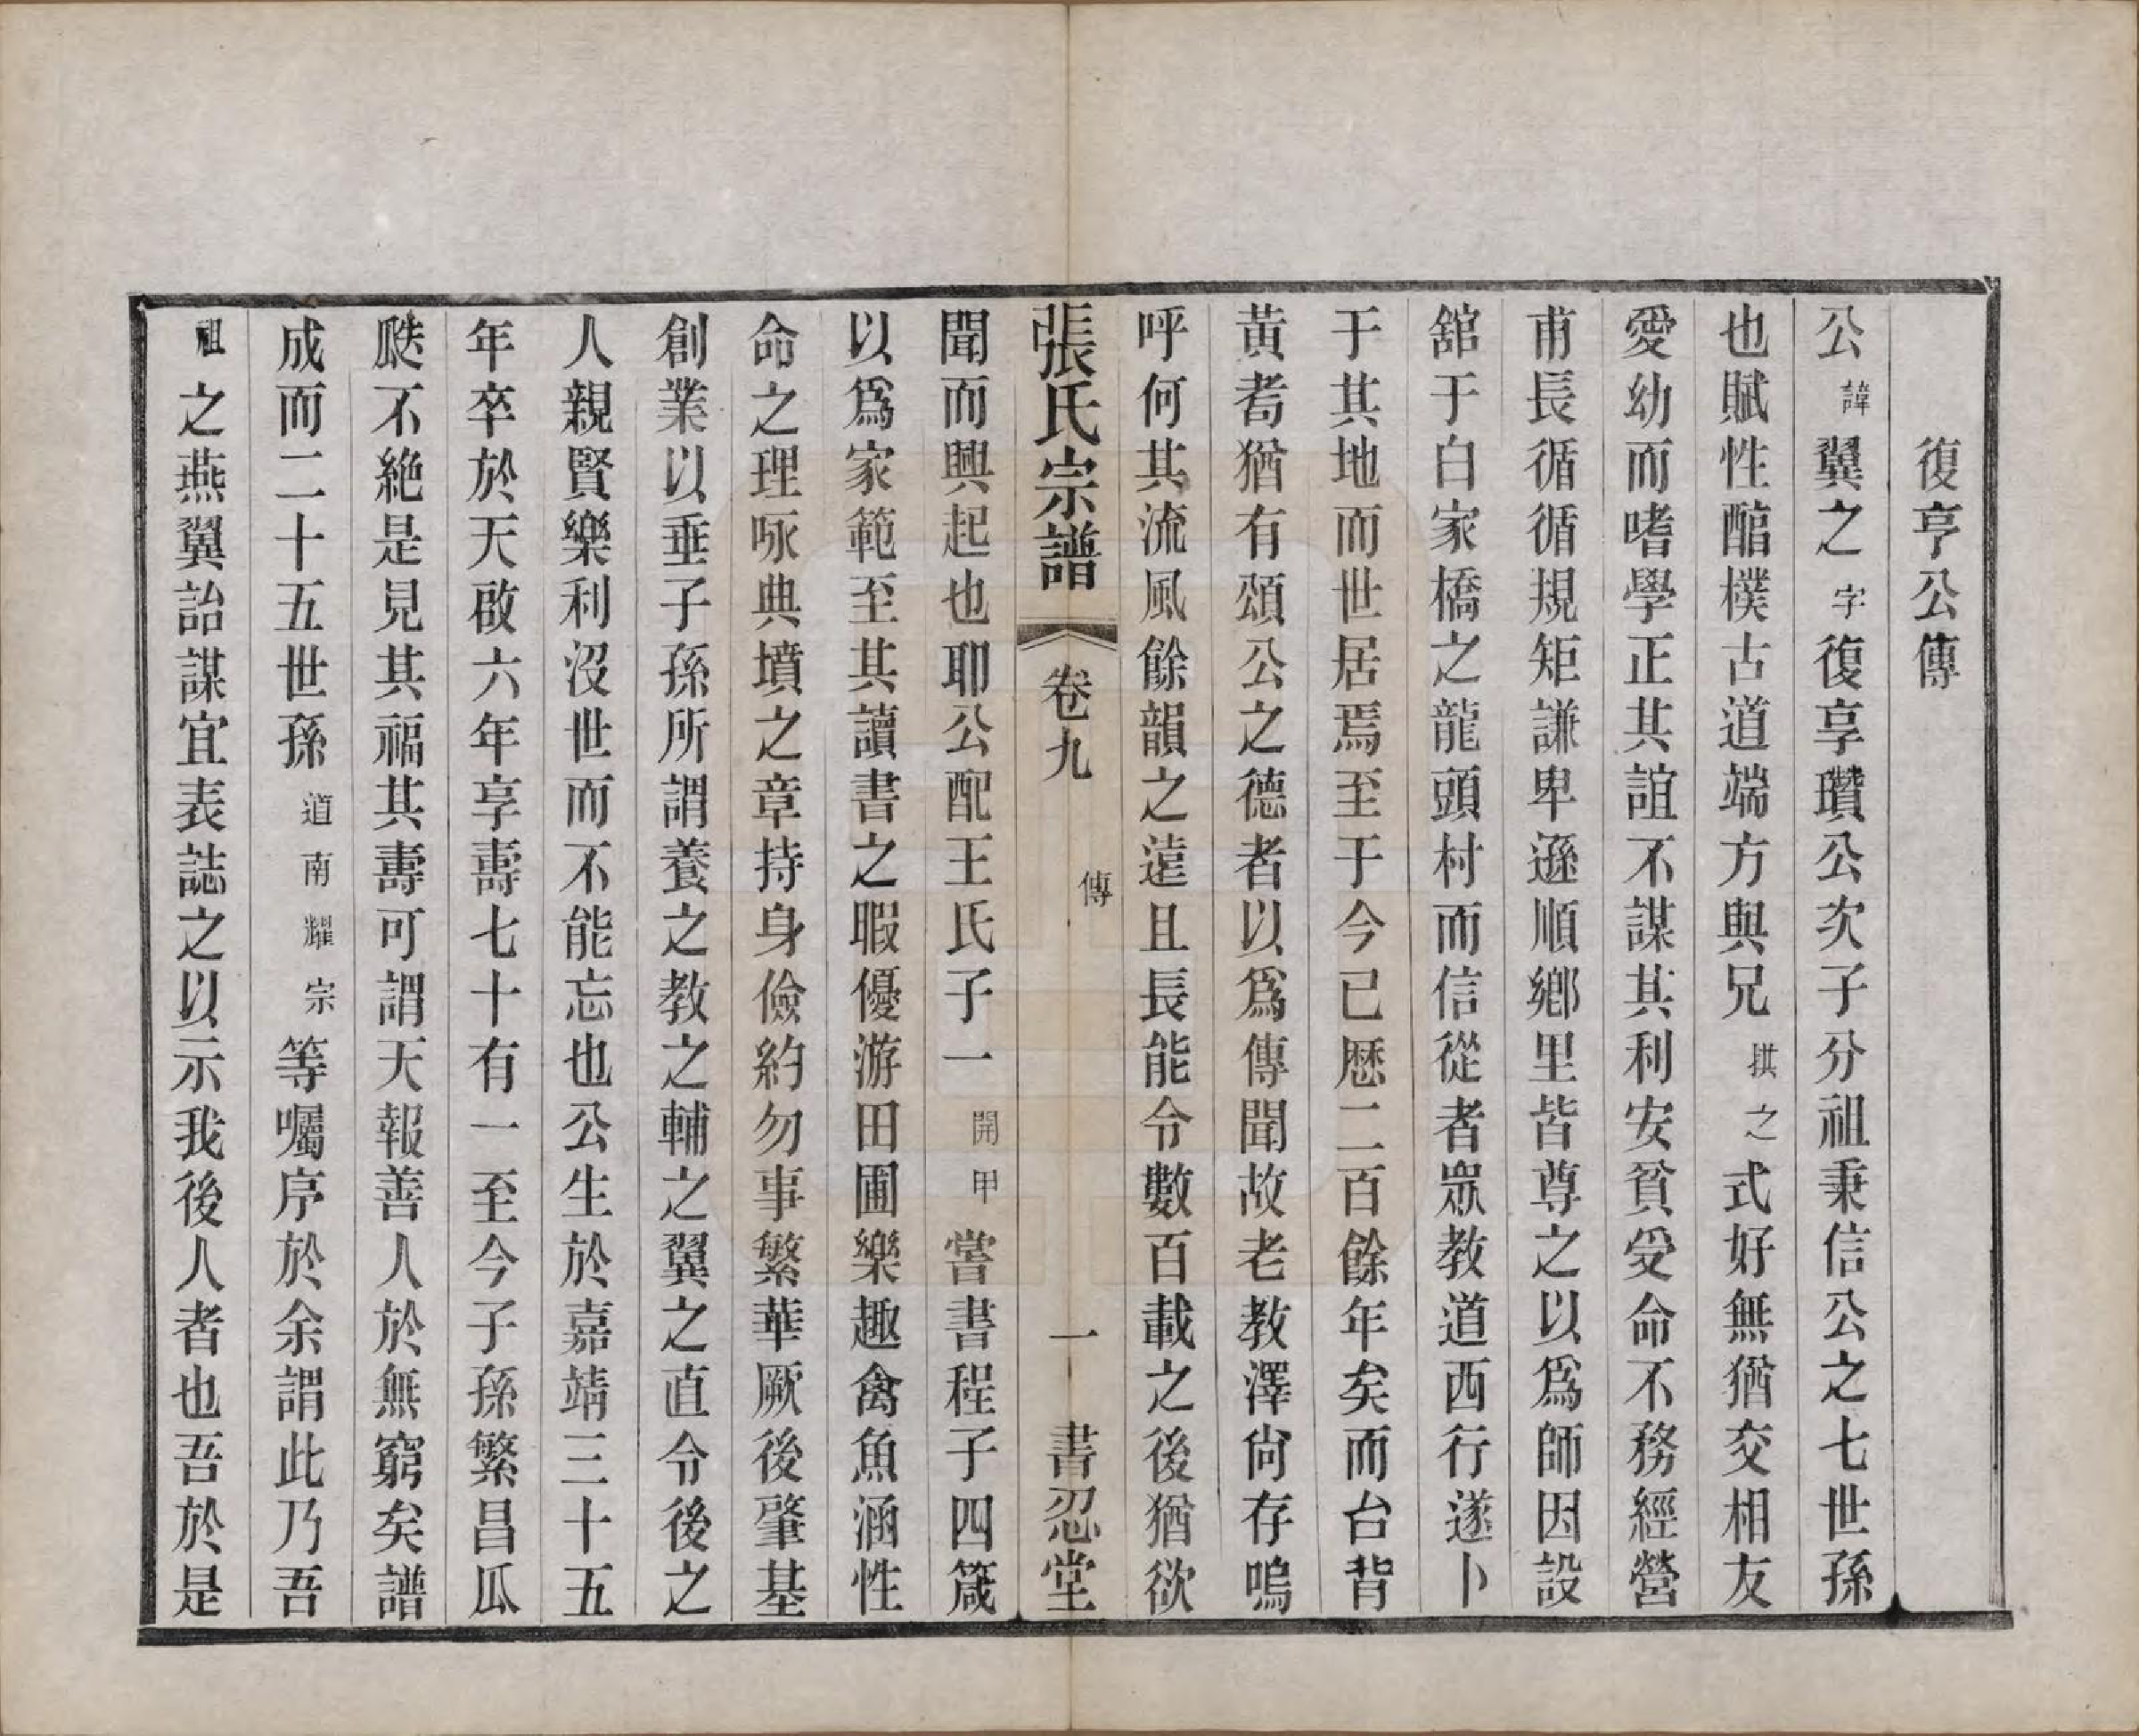 復亨公傳
公諱翼之字復享瓚公次子分祖秉信公之七世孫
也賦性醅樸古道端方與兄琪之式好無猶交相友
愛幼而嗜學正其誼不謀其利安貧受命不務經營
甫長循循規矩謙卑遜順鄉里皆尊之以爲師因設
舘于白家橋之龍頭村而信從者眾教道西行遂卜
于其地而世居焉至于今已歷二百餘年矣而台背
黃耉猶有頌公之德者以爲傳聞故老教澤尙存嗚
呼何其流風餘韻之遠且長能令數百載之後猶欲
張氏宗譜 卷九 傳 一 書忍堂
聞而興起也耶公配王氏子一開甲嘗書程子四箴
以爲家範至其讀書之暇優游田圃樂趣禽魚涵性
命之理咏典墳之章持身儉約勿事繁華厥後肇基
創業以垂子孫所謂養之教之輔之翼之直令後之
人親賢樂利沒世而不能忘也公生於嘉靖三十五
年卒於天啟六年享壽七十有一至今子孫繁昌瓜
瓞不絶是見其福其壽可謂天報善人於無窮矣譜
成而二十五世孫道南耀宗等囑序於余謂此乃吾
祖之燕翼詒謀宜表誌之以示我後人者也吾於是